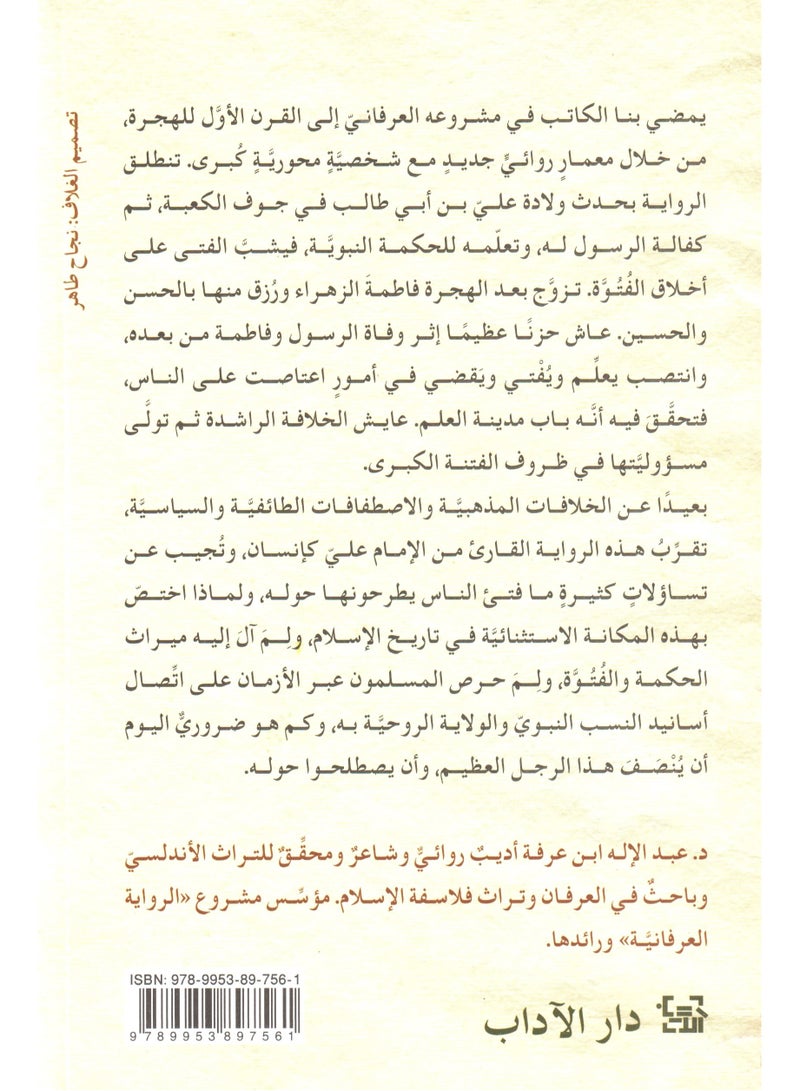 يمضي بنا الكاتب في مشروعه العرفانيّ إلى القرن الأوَّل للهجرة،
من خلال معمارٍ روائيٍّ جديدٍ مع شخصيَّةٍ محوريَّةٍ كُبرى. تنطلق
الرواية بحدث ولادة عليّ بن أبي طالب في جوف الكعبة، ثم
كفالة الرسول له، وتعلّمه للحكمة النبويَّة، فيشبَّ الفتى على
أخلاق الفُتُوَّة. تزوَّج بعد الهجرة فاطمةَ الزهراء ورُزق منها بالحسن
والحسين. عاش حزنًا عظيمًا إثر وفاة الرسول وفاطمة من بعده،
وانتصب يعلِّم ويُفْتي ويَقضي في أمورٍ اعتاصت على الناس،
فتحقَّقَ فيه أنَّه باب مدينة العلم. عايش الخلافة الراشدة ثم تولَّى
مسؤوليَّتها في ظروف الفتنة الكبرى.
بعيدًا عن الخلافات المذهبيَّة والاصطفافات الطائفيَّة والسياسيَّة،
تقرِّبُ هذه الرواية القارئ من الإمام عليّ كإنسان، وتُجيب عن
تساؤلاتٍ كثيرةٍ ما فتئ الناس يطرحونها حوله، ولماذا اختصّ
بهذه المكانة الاستثنائيَّة في تاريخ الإسلام، ولِمَ آلَ إليه ميراث
الحكمة والفُتُوَّة، ولِمَ حرص المسلمون عبر الأزمان على اتِّصال
أسانيد النسب النبويّ والولاية الروحيَّة به، وكم هو ضروريٌّ اليوم
أن يُنْصَفَ هذا الرجل العظيم، وأن يصطلحوا حوله.
د. عبد الإله ابن عرفة أديبٌ روائيٌّ وشاعرٌ ومحقِّقٌ للتراث الأندلسيّ
وباحثٌ في العرفان وتراث فلاسفة الإسلام. مؤسِّس مشروع «الرواية
العرفانيَّة» ورائدها.
تصميم الغلاف: نجاح طاهر
ISBN: 978-9953-89-756-1
9 789953 897561
دار الآداب